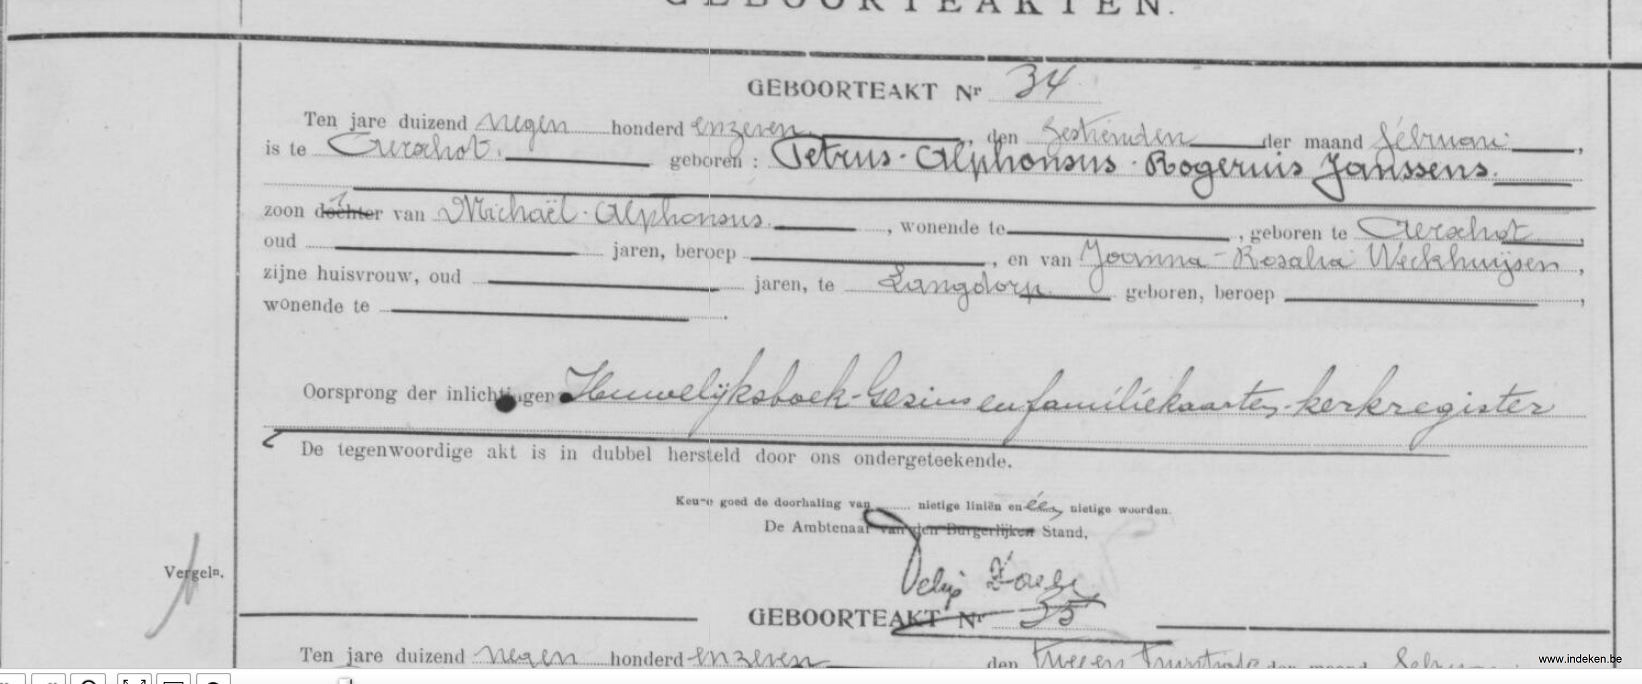 GEBOORTEAKTEN.
GEBOORTEAKT Nr 34
Ten jare duizend negen honderd enzeven, den zestienden der maand februari,
is te Aerschot. geboren : Petrus-Alphonsus-Rogerius Janssens.
zoon dochter van Michaël-Alphonsus., wonende te , geboren te Aerschot,
oud jaren, beroep , en van Joanna-Rosalia Weckhuijsen,
zijne huisvrouw, oud jaren, te Langdorp geboren, beroep ,
wonende te .
Oorsprong der inlichtingen Huwelijksboek-Gezins en familiekaarten-kerkregister
De tegenwoordige akt is in dubbel hersteld door ons ondergeteekende.
Keure goed de doorhaling van nietige liniën en één nietige woorden.
De Ambtenaar van den Burgerlijken Stand,
Vergeln.
GEBOORTEAKT Nr 35
Ten jare duizend negen honderd enzeven den der maand
www.indeken.be